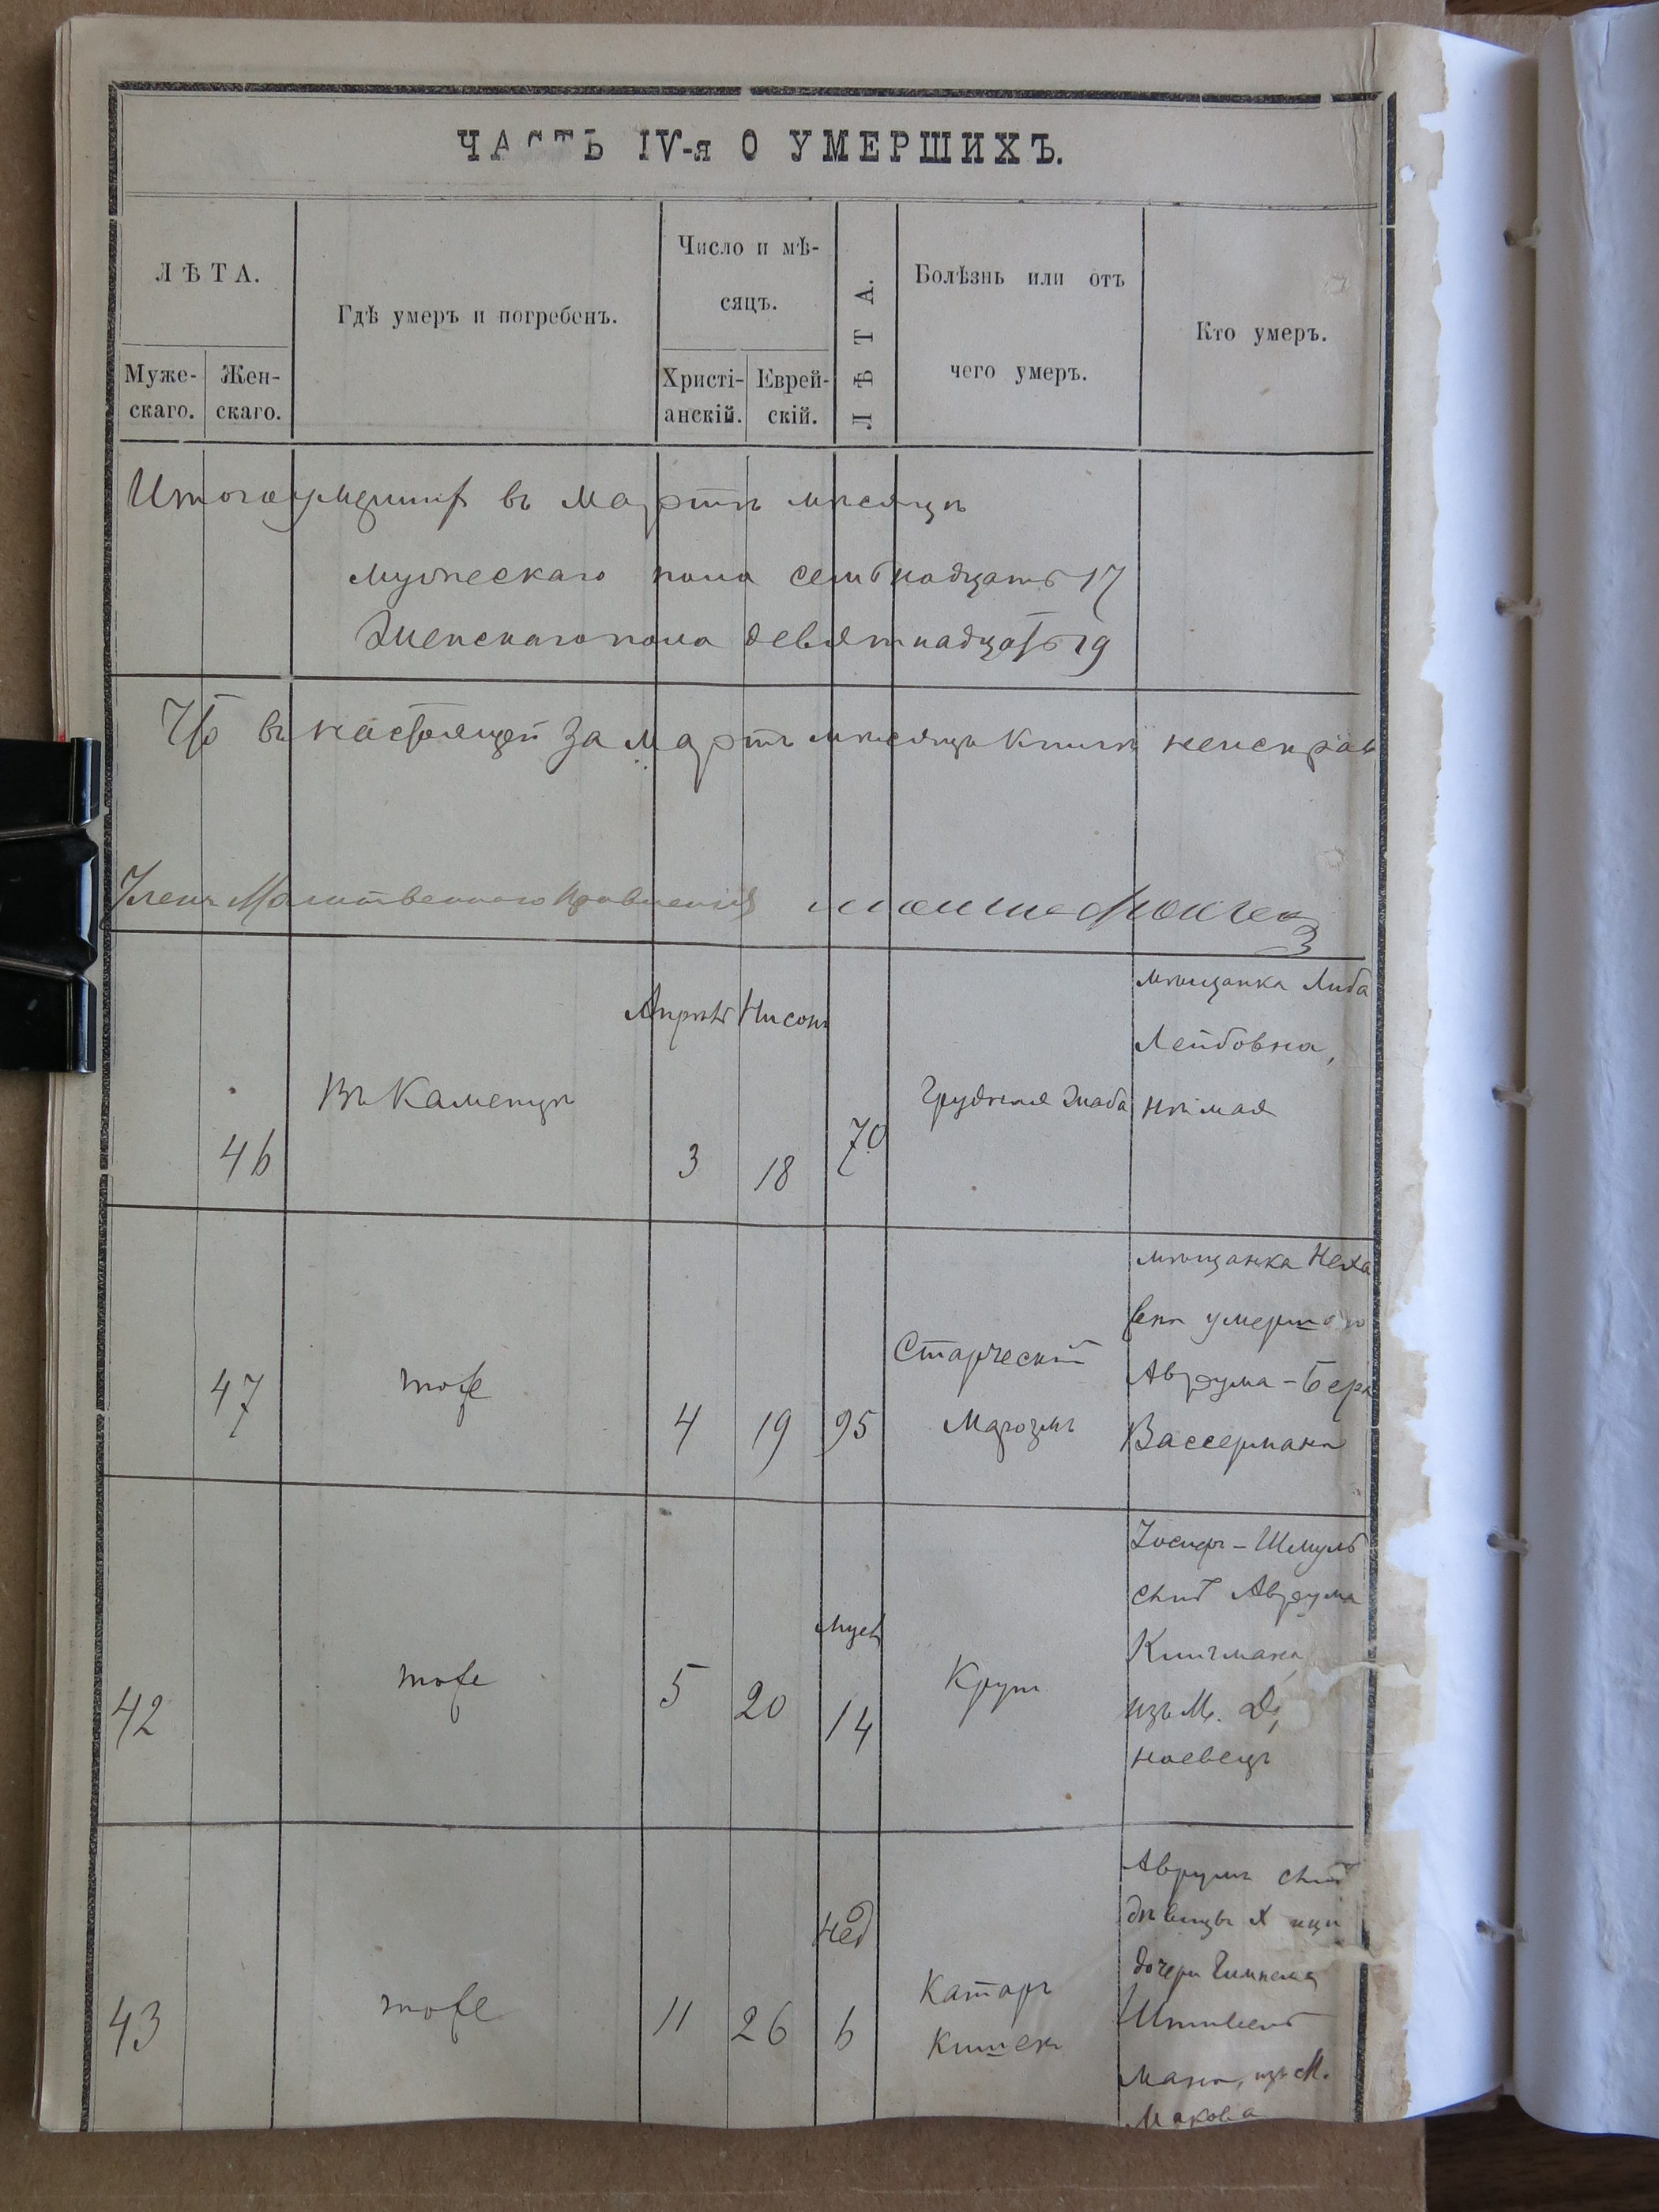 ЧАСТЬ IV-я О УМЕРШИХЪ.
ЛѢТА.
Муже-
скаго.
Жен-
скаго.
Гдѣ умеръ и погребенъ.
Число и мѣ-
сяцъ.
Христі-
анскій.
Еврей-
скій.
ЛѢТА.
Болѣзнь или отъ
чего умеръ.
Кто умеръ.
Итого умершихъ въ Мартѣ мѣсяцѣ
мужескаго пола семьнадцать 17
Женскаго пола девятнадцать 19
Что въ настоящей за Мартъ мѣсяцъ книгѣ неисправ
Членъ Молитвенного Правленія
46
Въ Каменцѣ
Апрѣль
3
Нисонъ
18
70
Грудная Жаба
мѣщанка Либа
Лейбовна,
нѣмая
47
тоже
4
19
95
Старческій
Маразмъ
мѣщанка Неха
жена умершого
Аврума-Бера
Вассермана
42
тоже
5
20
мѣсяц
14
Крупъ
Іосифъ-Шмуль
сынъ Аврума
изъ М.
43
тоже
11
26
нед
6
Катаръ
Кишекъ
Аврумъ сынъ
дѣвицы
дочери Гимпеля
мана, изъ М.
Макова